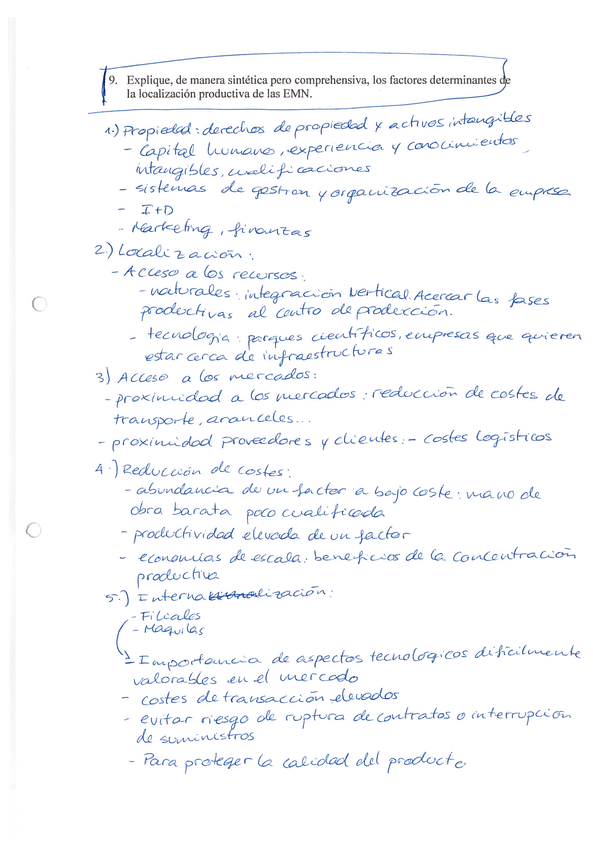 9. Explique, de manera sintética pero comprehensiva, los factores determinantes de
la localización productiva de las EMN.
1.) Propiedad: derechos de propiedad y activos intangibles
- Capital humano, experiencia y conocimientos
intangibles, cualificaciones
- sistemas de gestion y organización de la empresa
- I+D
- Marketing, finanzas
2.) Localización:
- Acceso a los recursos:
- naturales: integración vertical. Acercar las fases
productivas al centro de producción.
- tecnologia: parques científicos, empresas que quieren
estar cerca de infraestructuras
3) Acceso a los mercados:
- proximidad a los mercados: reducción de costes de
transporte, aranceles...
- proximidad proveedores y clientes: - costes logísticos
4.) Reducción de costes:
- abundancia de un factor a bajo coste: mano de
obra barata poco cualificada
- productividad elevada de un factor
- economías de escala: beneficios de la concentración
productiva
5.) Internalización:
- Filiales
- Maquilas
- Importancia de aspectos tecnologicos dificilmente
valorables en el mercado
- costes de transacción elevados
- evitar riesgo de ruptura de contratos o interrupción
de suministros
- Para proteger la calidad del producto